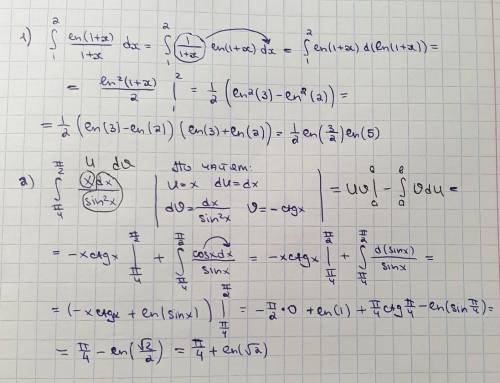 1) ∫₁² ln(1+x)/(1+x) dx = ∫₁² (1/(1+x)) ln(1+x) dx = ∫₁² ln(1+x) d(ln(1+x)) =
= ln²(1+x)/2 |₁² = 1/2 (ln²(3) - ln²(2)) =
= 1/2 (ln(3) - ln(2)) (ln(3) + ln(2)) = 1/2 ln(3/2) ln(5)
u dv
2) ∫_{π/4}^{π/2} x dx/sin²x | По частям: u = x du = dx dv = dx/sin²x v = -ctgx | = uv |ₐᵃ - ∫ₐᵇ v du =
= -x ctgx |_{π/4}^{π/2} + ∫_{π/4}^{π/2} cosx dx/sinx = -x ctgx |_{π/4}^{π/2} + ∫_{π/4}^{π/2} d(sinx)/sinx =
= (-x ctgx + ln(sinx)) |_{π/4}^{π/2} = -π/2 · 0 + ln(1) + π/4 ctg π/4 - ln(sin π/4) =
= π/4 - ln(√2/2) = π/4 + ln(√2)